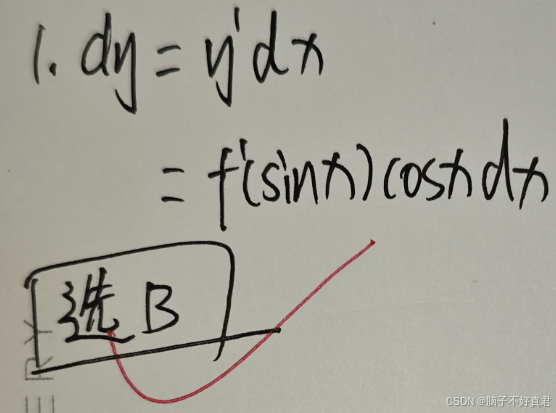 1. dy = y'dx
= f'(sinx)cosxdx
选B
ERY
CSDN @脑子不好真君